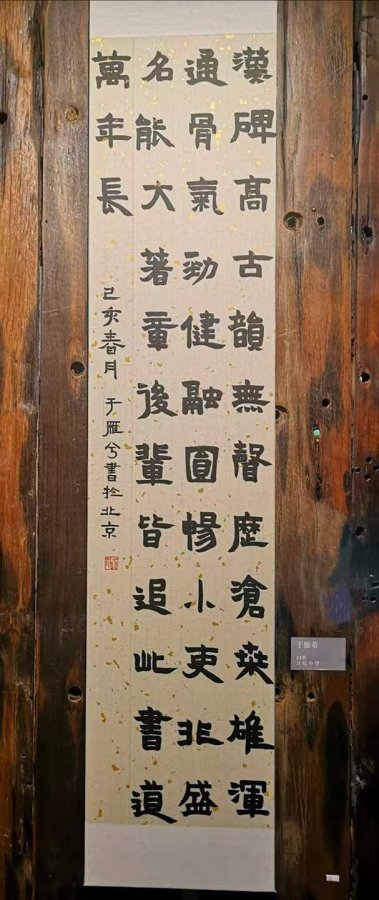 漢碑高古韻無聲歷滄桑雄渾
通骨氣勁健融圓暢小吏非盛
名能大著章後輩皆追此書道
萬年長
己亥春月于雁兮書於北京
于雁希
14岁
月坛中学